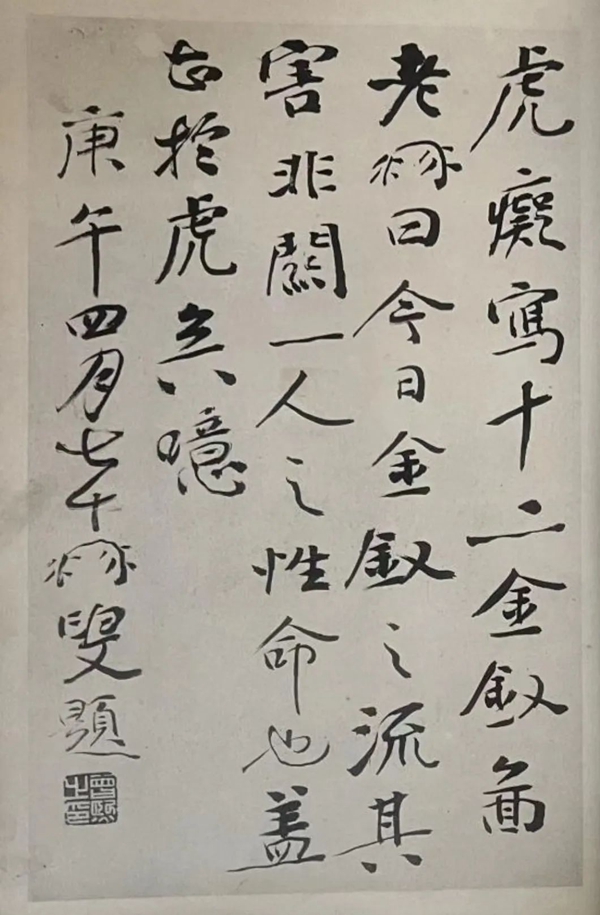 虎癡寫十二金釵啚
老髯曰今日金釵之流其
害非關一人之性命也蓋
於虎
噫
庚午四月七十髯叟題
曾熙之印